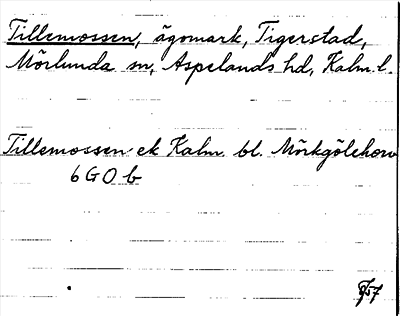 Tillemossen, ägomark, Tigerstad,
Mörlunda sn, Aspelands hd, Kalm. l.
Tillemossen ek Kalm bl. Mörkgölehorv
6 G O b